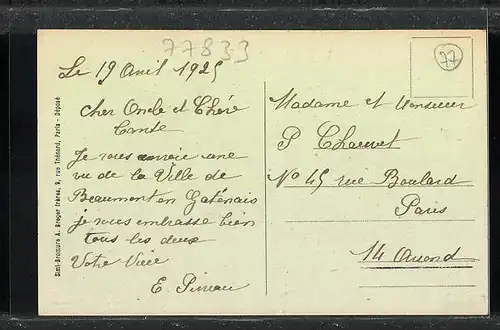 77833
77
Le 19 Avril 1925
Cher Oncle et Chère
Tante
Je vous envoie une
vu de la Ville de
Beaumont en Gatinais
je vous embrasse bien
tous les deux
Votre Nièce
E. Pineau
Madame et Monsieur
P Chauvet
No 45 rue Boulard
Paris
14 Arrond
Simi-Bromure A. Breger frères, 9, rue Thénard, Paris - Déposé